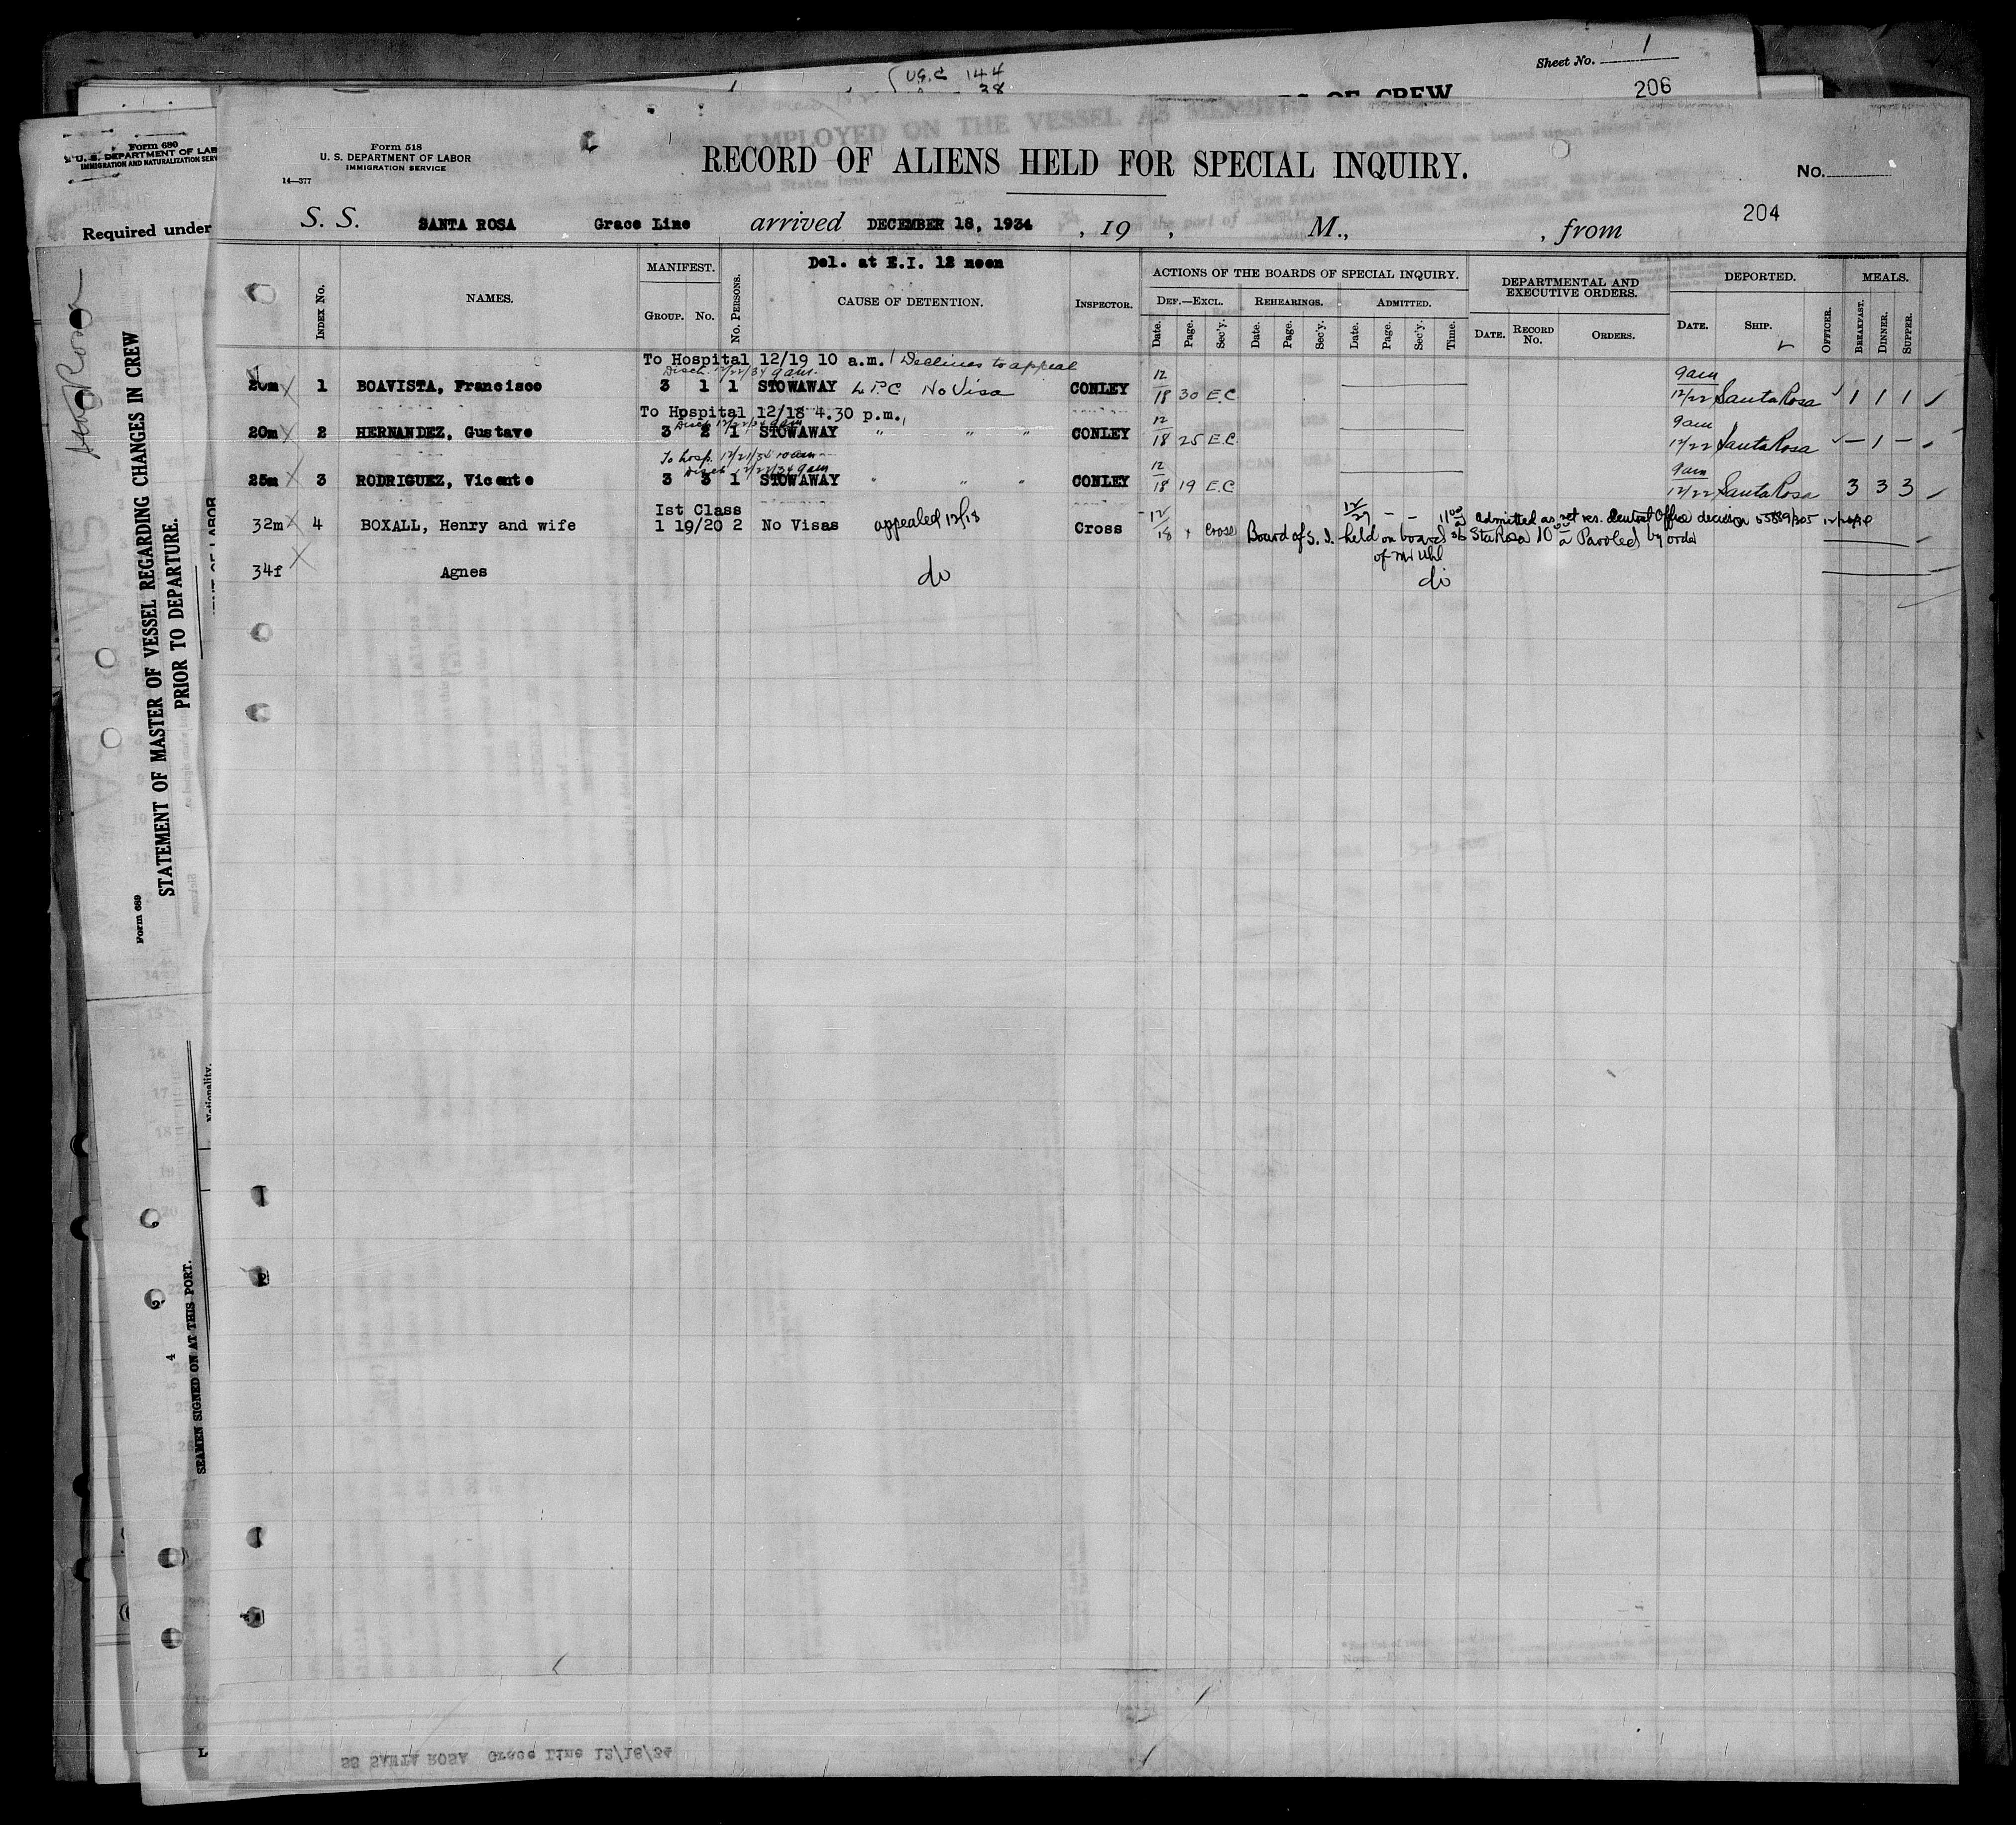 Sheet No. 1
U.S.C 144
38
OF CREW
206
Form 680
U. S. DEPARTMENT OF LAB
IMMIGRATION AND NATURALIZATION SERV
Required under
Form 689
STATEMENT OF MASTER OF VESSEL REGARDING CHANGES IN CREW
PRIOR TO DEPARTURE.
Nationality.
4
SEAMEN SIGNED ON AT THIS PORT.
EMPLOYED ON THE VESSEL AS MEMBERS
Form 518
U. S. DEPARTMENT OF LABOR
IMMIGRATION SERVICE
14—377
RECORD OF ALIENS HELD FOR SPECIAL INQUIRY.
No.
204
S. S. SANTA ROSA Grace Line arrived DECEMBER 18, 1934, 19 , M., , from
Del. at E.I. 12 noon
INDEX No. NAMES. MANIFEST. GROUP. No. No. PERSONS. CAUSE OF DETENTION. INSPECTOR.
ACTIONS OF THE BOARDS OF SPECIAL INQUIRY. DEF.—EXCL. REHEARINGS. ADMITTED.
Date. Page. Sec'y. Date. Page. Sec'y. Date. Page. Sec'y. Time.
DEPARTMENTAL AND EXECUTIVE ORDERS. DATE. RECORD No. ORDERS.
DEPORTED. DATE. SHIP. OFFICER. MEALS. BREAKFAST. DINNER. SUPPER.
To Hospital 12/19 10 a.m. Declines to appeal
Disch. 12/22/34 9am.
20m 1 BOAVISTA, Francisco 3 1 1 STOWAWAY L.P.C No Visa CONLEY 12/18 30 E.C. 9am 12/22 Santa Rosa 1 1 1
To Hospital 12/18 4.30 p.m.
Disch 12/22/34 9am
20m 2 HERNANDEZ, Gustave 3 2 1 STOWAWAY " " " CONLEY 12/18 25 E.C. 9am 12/22 Santa Rosa — 1 —
To hosp. 12/21/34 10am
Disch 12/22/34 9am
25m 3 RODRIGUEZ, Vicente 3 3 1 STOWAWAY " " " CONLEY 12/18 19 E.C 9am 12/22 Santa Rosa 3 3 3
Ist Class
32m 4 BOXALL, Henry and wife 1 19/20 2 No Visas appealed 12/18 Cross 12/18 Cross 12/29 - - 11 00 a admitted as ret res. Central Office decision
Board of S. I. held on board ss Sta Rosa 10 a Paroled by order
of Mr Uhl
34f Agnes do do
SS SANTA ROSA Grace Line 12/18/34